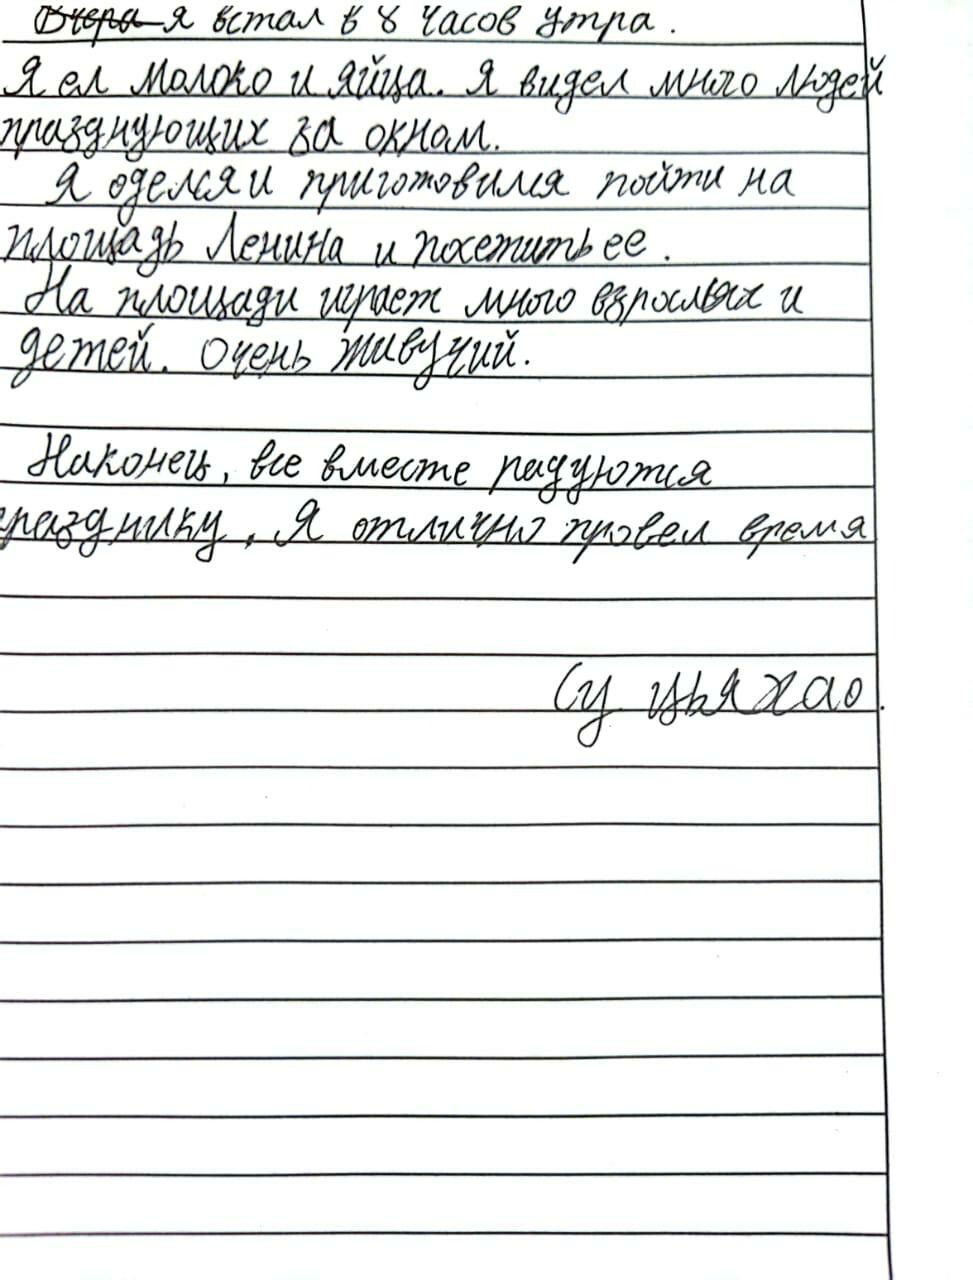 Вчера я встал в 8 часов утра.
Я ел молоко и яйца. Я видел много людей
празднующих за окном.
Я оделся и приготовился пойти на
площадь Ленина и посетить ее.
На площади играет много взрослых и
детей. Очень живучий.
Наконец, все вместе радуются
празднику, Я отлично провел время
Су Цьяхао.